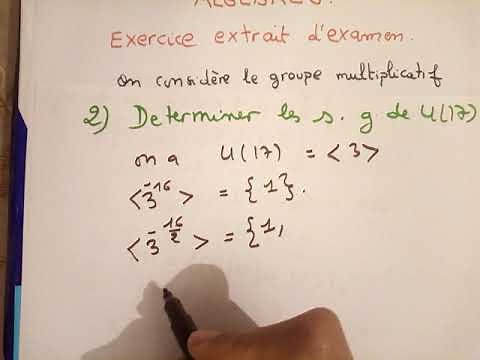 ALGEBRE
Exercice extrait d'examen.
on considère le groupe multiplicatif
2) Determiner les s. g de U(17)
on a U(17) = <3>
<3̄^16> = {1}.
<3̄^(16/2)> = {1,